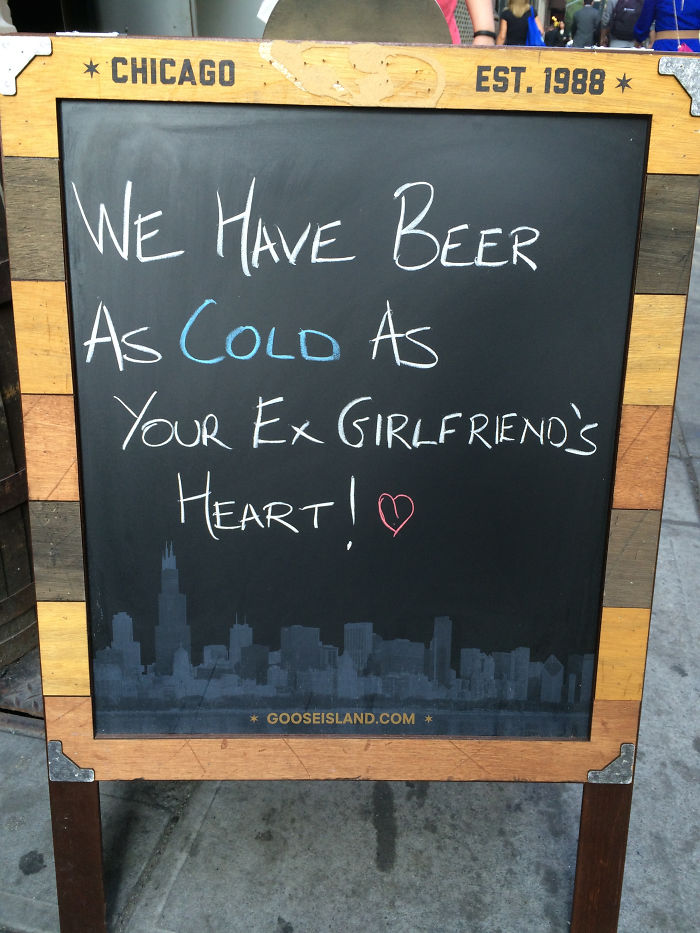 * CHICAGO EST. 1988 *
WE HAVE BEER
AS COLD AS
YOUR EX GIRLFRIEND'S
HEART!
* GOOSEISLAND.COM *